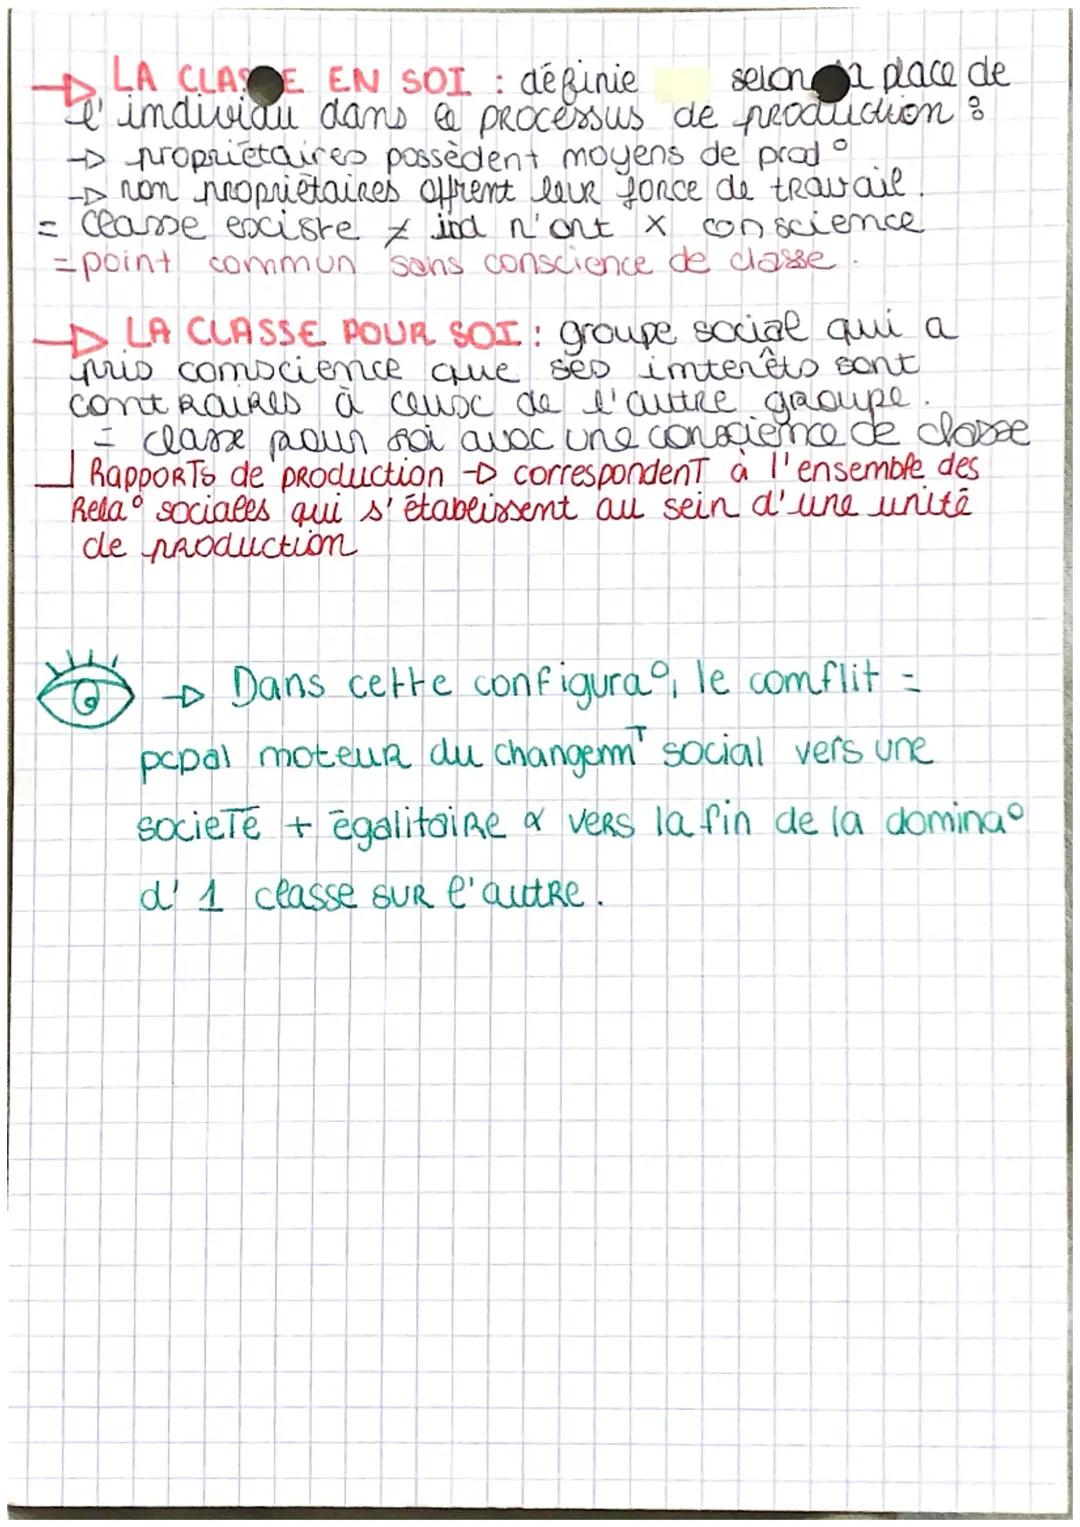 → LA CLASSE EN SOI : définie selon la place de
l'individu dans le processus de production :
→ propriétaires possèdent moyens de prod°
→ non propriétaires offrent leur force de travail.
= classe existe ≠ ind n'ont x conscience
= point commun sans conscience de classe.
→ LA CLASSE POUR SOI : groupe social qui a
pris conscience que ses intérêts sont
contraires à ceux de l'autre groupe.
= classe pour soi avec une conscience de classe
Rapports de production → correspondent à l'ensemble des
Rela° sociales qui s'établissent au sein d'une unité
de production
→ Dans cette configura°, le conflit =
pcpal moteur du changemt social vers une
société + égalitaire & vers la fin de la domina°
d'1 classe sur l'autre.